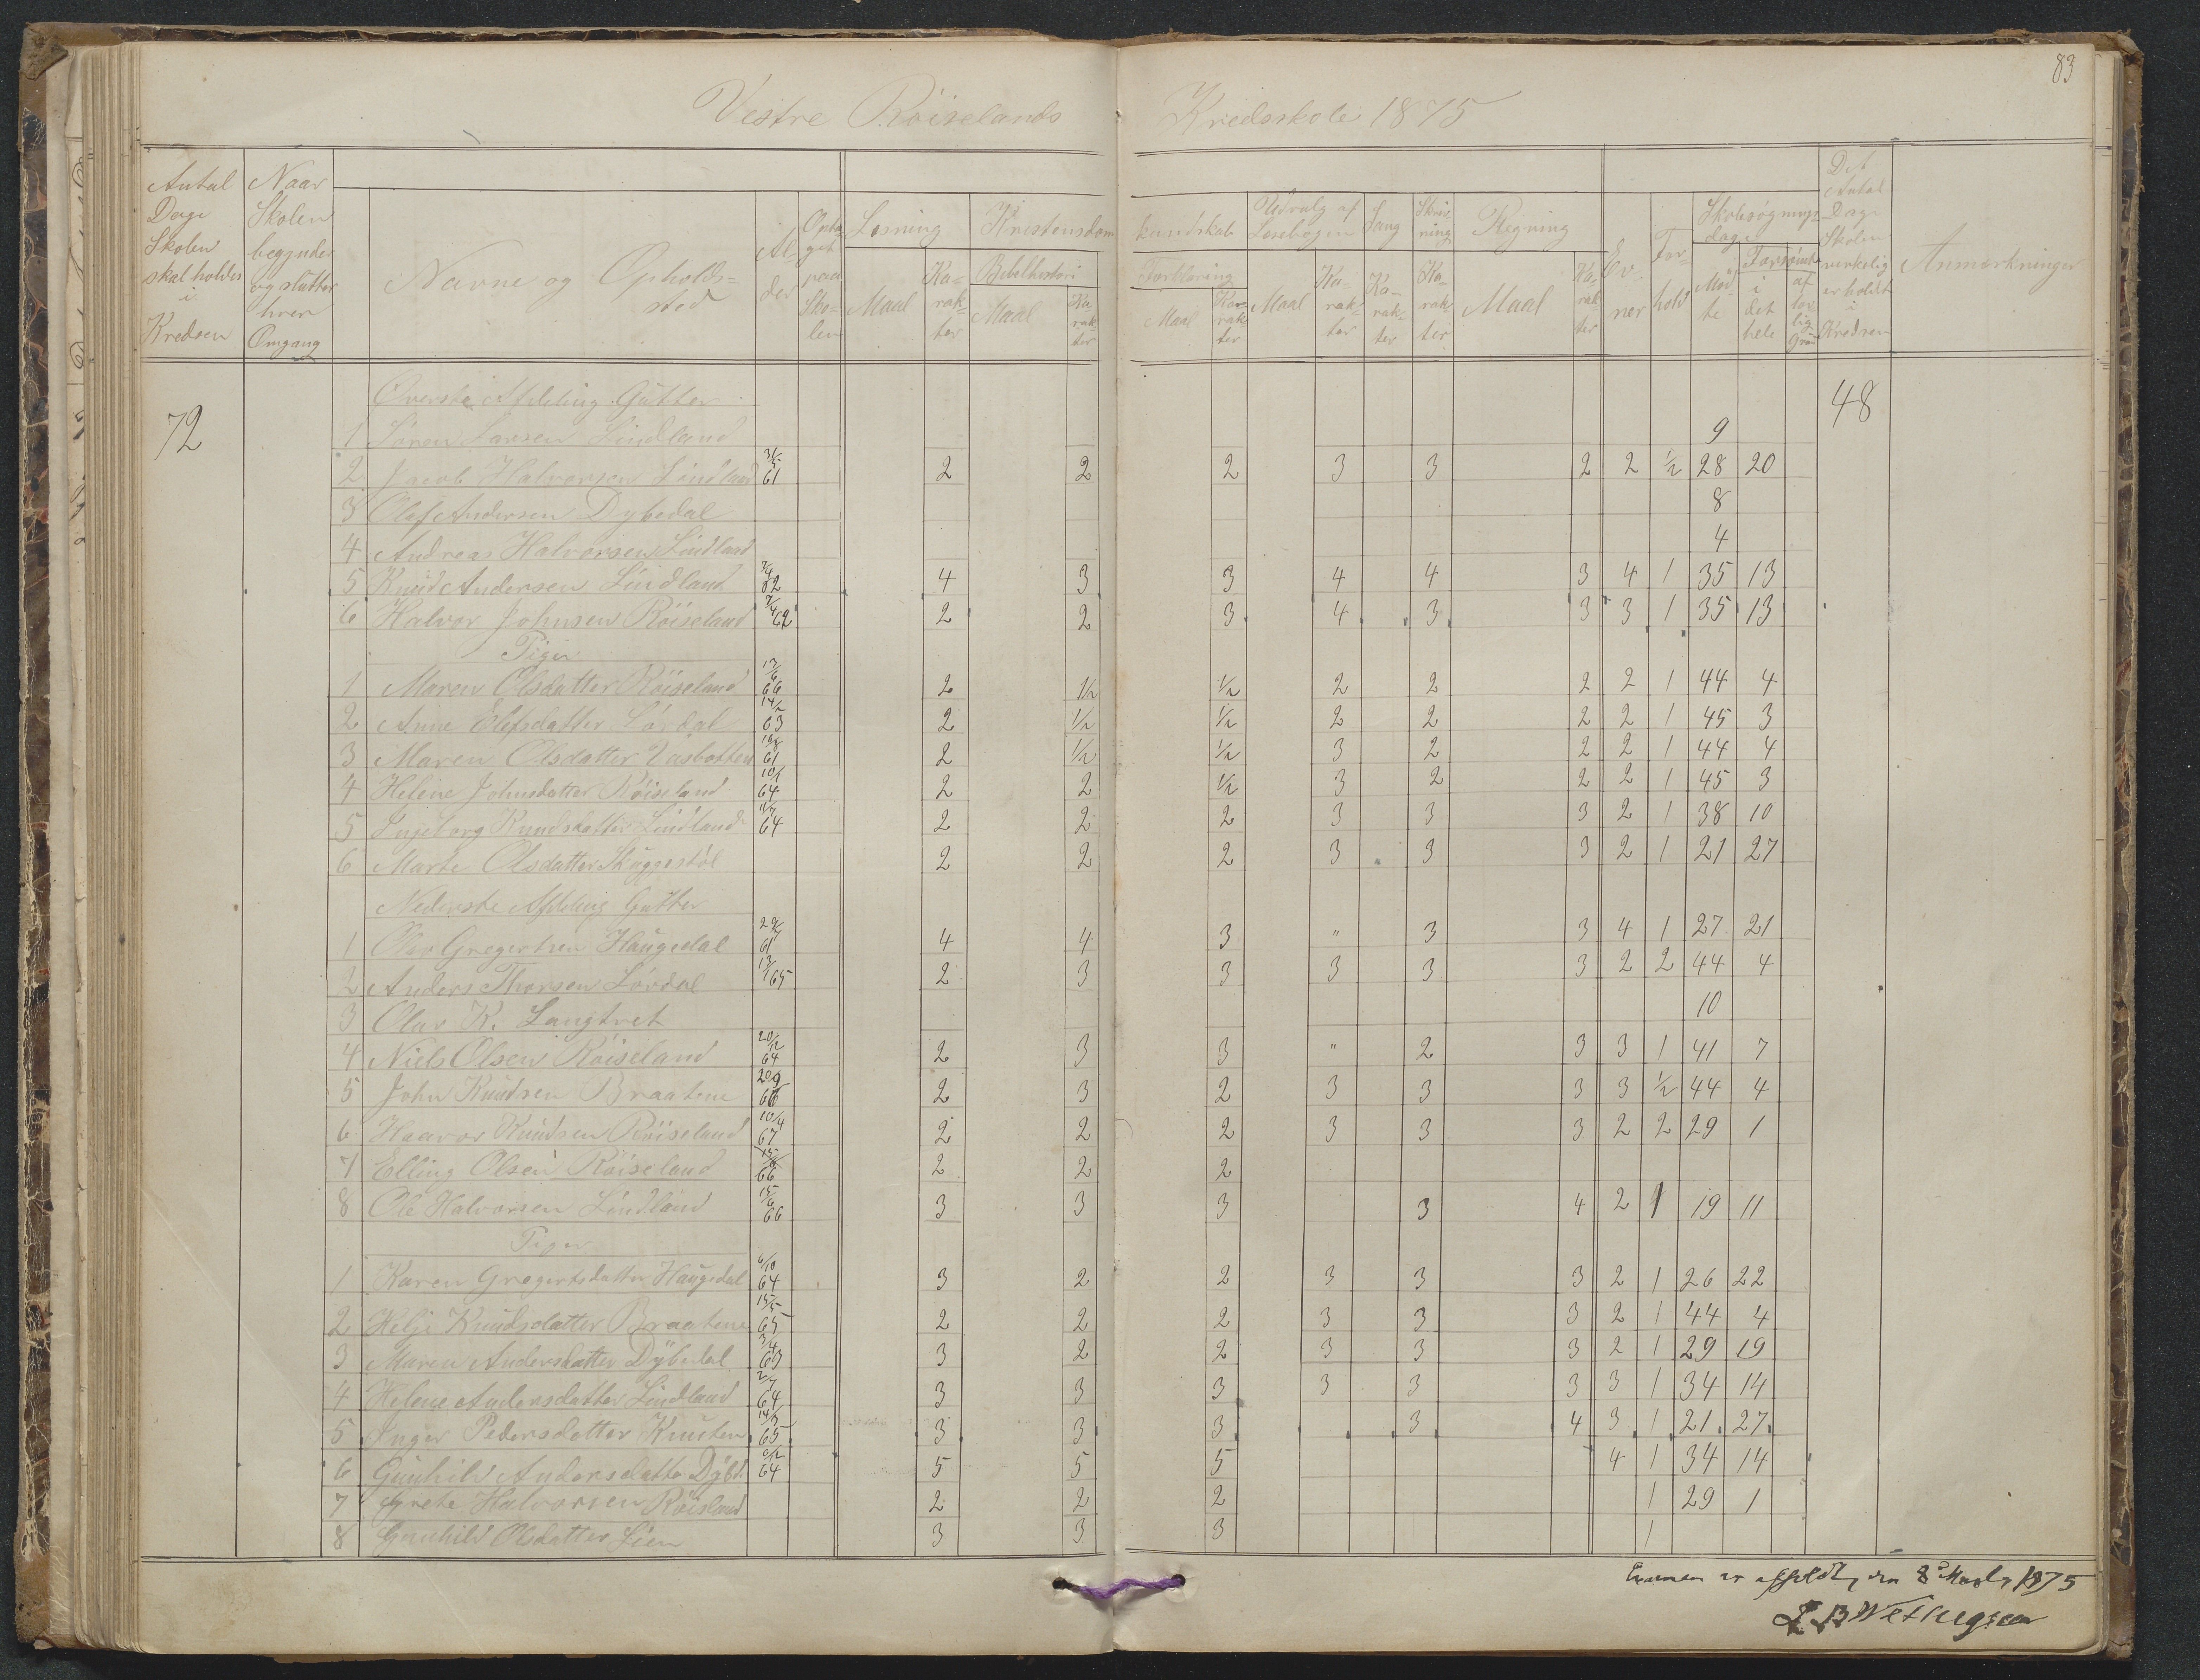 83
Vestre Röiselands Kredsskole 1875
Antal Dage Skolen skal holdes i Kredsen
Naar Skolen begynder og slutter hver Omgang
Navne og Opholdssted
Alder
Optaget paa Skolen
Læsning
Maal
Karakter
Kristendoms kundskab
Bibelhistori
Maal
Karakter
Forklaring
Maal
Karakter
Udvalg af Læsebogen
Maal
Karakter
Sang
Karakter
Skrivning
Karakter
Regning
Maal
Karakter
Evner
Forhold
Skolesøgningsdage
Mødte
Forsømte
i det hele
af lovlig Grund
Det Antal Dage Skolen virkelig er holdt i Kredsen
Anmærkninger
72
48
Øverste Afdeling Gutter
1 Søren Larsen Lindland 9
2 Jacob Halvorsen Lindland 31/5 61 2 2 2 3 3 2 2 1/2 28 20
3 Olaf Andersen Dybedal 8
4 Andreas Halvorsen Lindland 4
5 Knud Andersen Lindland 4 3 3 4 4 3 4 1 35 13
6 Halvor Johnsen Röiseland 7/4 62 2 2 3 4 3 3 3 1 35 13
Piger
1 Maren Olsdatter Röiseland 13/6 66 2 1/2 1/2 2 2 2 2 1 44 4
2 Anne Elefsdatter Lördal 14/2 63 2 1/2 1/2 2 2 2 2 1 45 3
3 Maren Olsdatter Vasbotten 61 2 1/2 1/2 3 2 2 2 1 44 4
4 Helene Johnsdatter Röiseland 10/1 64 2 2 1/2 3 2 2 2 1 45 3
5 Ingeborg Knudsdatter Lindland 64 2 2 2 3 3 3 2 1 38 10
6 Marte Olsdatter Skuggestöl 2 2 2 3 3 3 2 1 21 27
Nederste Afdeling Gutter
1 Olav Gregertsen Haugedal 61 4 4 3 " 3 3 4 1 27 21
2 Anders Thorsen Lördal 13/1 65 2 3 3 3 3 3 2 2 44 4
3 Olav K. Langtvet 10
4 Niels Olsen Röiseland 20/12 64 2 3 3 " 2 3 3 1 41 7
5 John Knudsen Braatene 20/9 66 2 3 2 3 3 3 3 1/2 44 4
6 Haavor Knudsen Röiseland 10/4 67 2 2 2 3 3 3 2 2 29 1
7 Elling Olsen Röiseland 15/6 66 2 2 2
8 Ole Halvorsen Lindland 15/6 66 3 3 3 3 4 2 1 19 11
Piger
1 Karen Gregertsdatter Haugedal 6/10 64 3 2 2 3 3 3 2 1 26 22
2 Helje Knudsdatter Braatene 15/5 65 2 2 2 3 3 3 2 1 44 4
3 Maren Andersdatter Dybedal 3/4 63 3 2 2 3 3 3 2 1 29 19
4 Helene Andersdatter Lindland 2/7 64 3 3 3 3 3 3 3 1 34 14
5 Inger Pedersdatter Knuten 65 3 3 3 3 4 3 1 21 27
6 Gunhild Andersdatte Dybd. 64 5 5 5 4 1 34 14
7 Grete Halvorsen Röisland 2 2 2 1 29 1
8 Gunhild Olsdatter Lien 3 3 3 1
Examen er afholdt den 8de Marts 1875